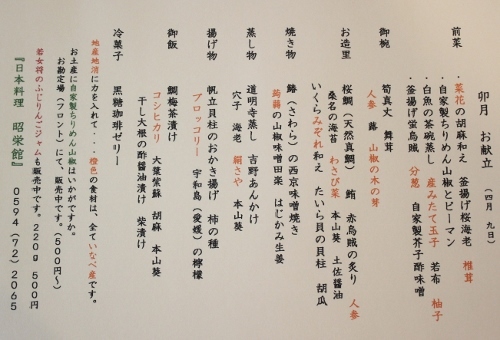 卯月 お献立 （四月 九日）
前菜
・菜花の胡麻和え 釜揚げ桜海老 椎茸
・自家製ちりめん山椒とピーマン
・白魚の茶碗蒸し 産みたて玉子 若布 柚子
・釜揚げ蛍烏賊 分葱 自家製芥子酢味噌
御椀
筍真丈 舞茸
人参 蕗 山椒の木の芽
お造里
桜鯛（天然真鯛） 鮪 赤烏賊の炙り 人参
桑名の海苔 わさび菜 本山葵 土佐醤油
いくらみぞれ和え たいら貝の貝柱 胡瓜
焼き物
鰆（さわら）の西京味噌焼き
蒟蒻の山椒味噌田楽 はじかみ生姜
蒸し物
道明寺蒸し 吉野あんかけ
穴子 海老 絹さや 本山葵
揚げ物
帆立貝柱のおかき揚げ 柿の種
ブロッコリー 宇和島（愛媛）の檸檬
御飯
鯛梅茶漬け
コシヒカリ 大葉紫蘇 胡麻 本山葵
干し大根の酢醤油漬け 柴漬け
冷菓子
黒糖珈琲ゼリー
地産地消に力を入れて・・・橙色の食材は、全ていなべ産です。
お土産に自家製ちりめん山椒はいかがですか。
お勘定場（フロント）にて、販売中です。（500円～）
若女将のふじりんごジャムも販売中です。220g 500円
『日本料理 昭栄館』 0594（72）2065